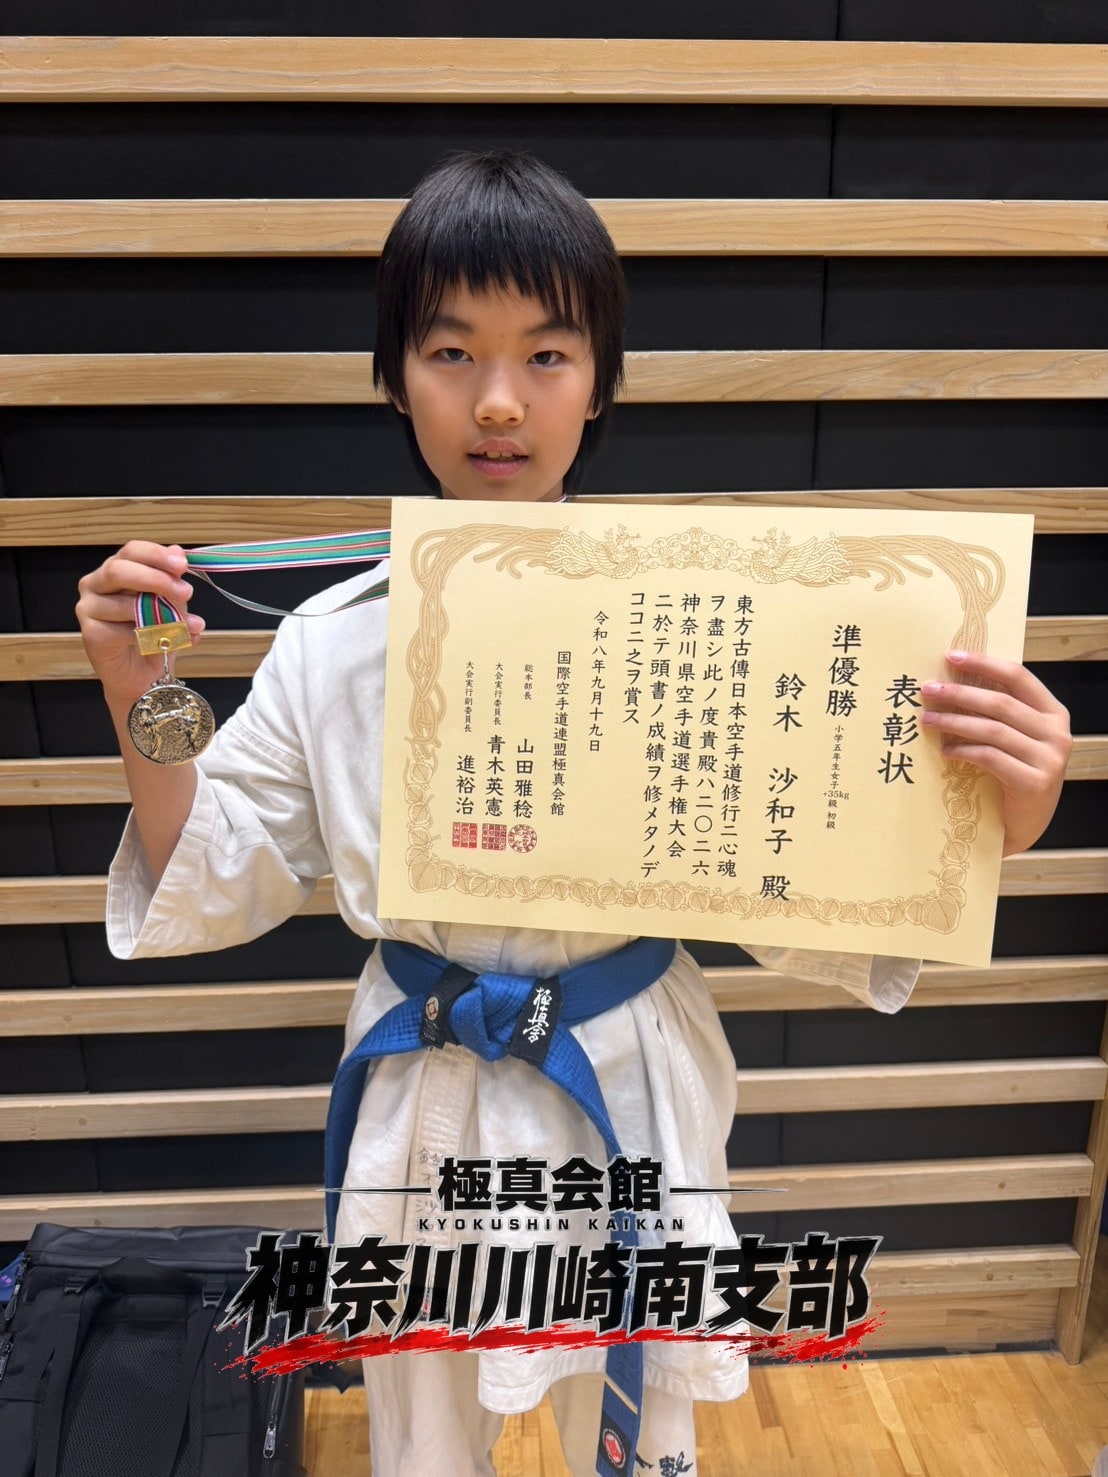 表彰状
準優勝 小学五年生女子+35kg級 初級
鈴木 沙和子 殿
東方古傳日本空手道修行ニ心魂
ヲ盡シ此ノ度貴殿ハ二〇二六
神奈川県空手道選手権大会
ニ於テ頭書ノ成績ヲ修メタノデ
ココニ之ヲ賞ス
令和八年九月十九日
国際空手道連盟極真会館
総本部長 山田雅稔
大会実行委員長 青木英憲
大会実行副委員長 進裕治
極真会
極真会館
KYOKUSHIN KAIKAN
神奈川川崎南支部